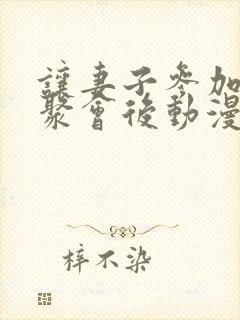 讓妻子參加
聚會後動漫
梓不染